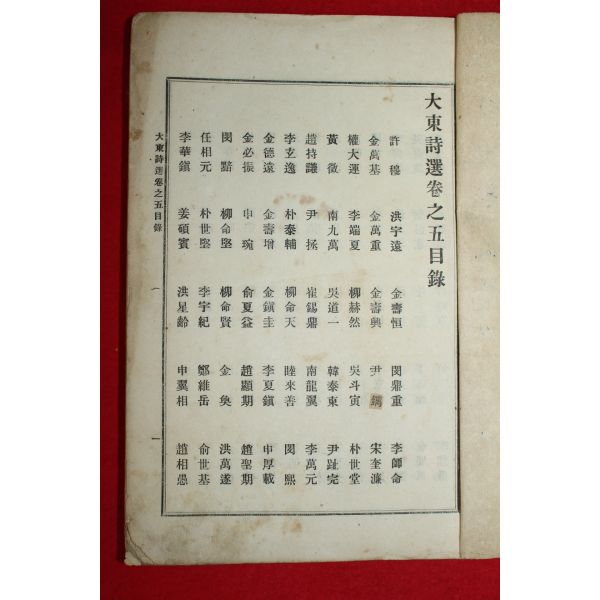 大東詩選卷之五目錄
許穆 洪宇遠 金壽恒 閔鼎重 李師命
金萬基 金萬重 金壽興 尹鑴 宋奎濂
權大運 李端夏 柳赫然 吳斗寅 朴世堂
黃徵 南九萬 吳道一 韓泰東 尹趾完
趙持謙 尹拯 崔錫鼎 南龍翼 李萬元
李玄逸 朴泰輔 柳命天 睦來善 閔熙
金德遠 金壽增 金鎭圭 李夏鎭 申厚載
金必振 申琓 兪夏益 趙顯期 趙聖期
閔黯 柳命堅 柳命賢 金奐 洪萬遂
任相元 朴世堅 李宇紀 鄭維岳 兪世基
李華鎭 姜碩賓 洪星齡 申翼相 趙相愚
大東詩選卷之五目錄 一